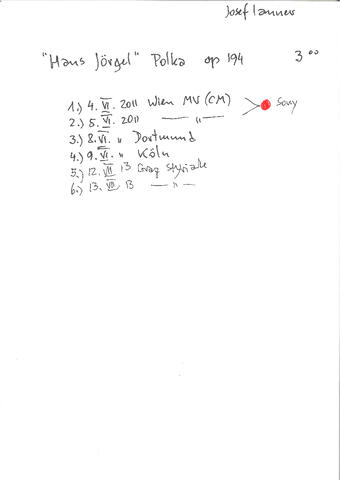 Josef Lanner
"Hans Jörgel" Polka op 194 3 00
1.) 4. VI. 2011 Wien MV (CM) Sony
2.) 5. VI. 2011 — " —
3.) 8. VI. " Dortmund
4.) 9. VI. " Köln
5.) 12. VII 13 Graz Styriarte
6.) 13. VII 13 — " —